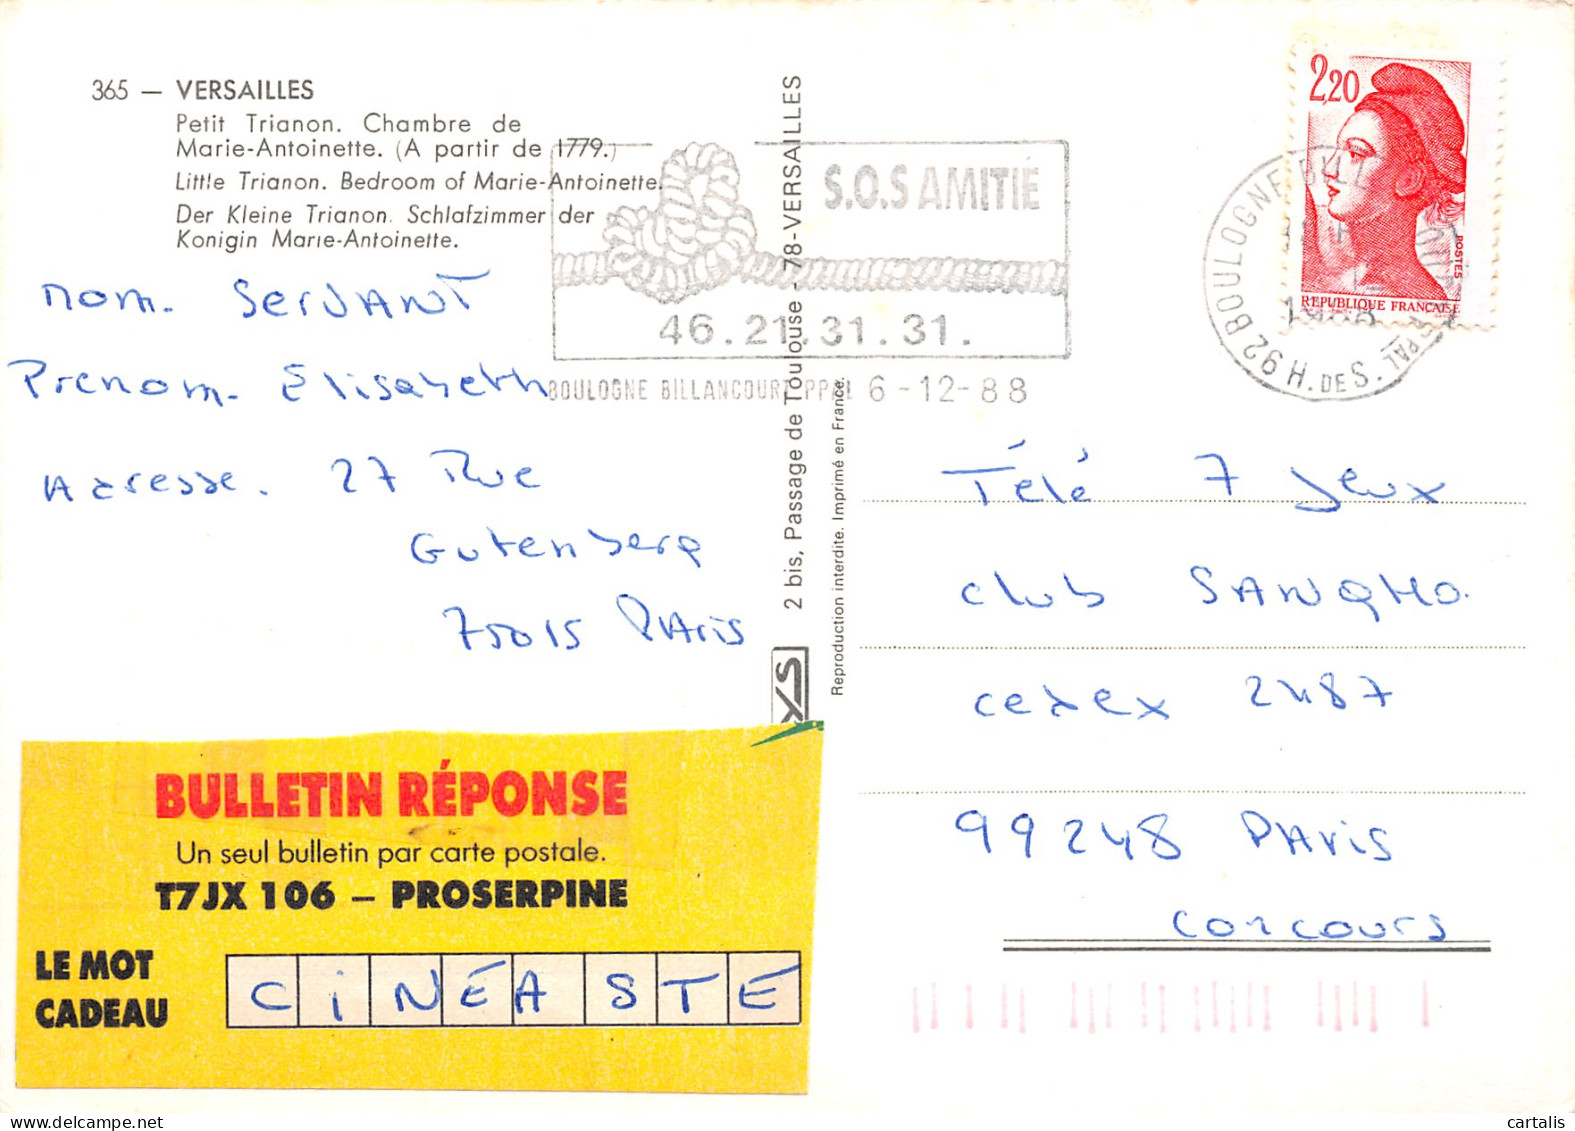 365 — VERSAILLES
Petit Trianon. Chambre de
Marie-Antoinette. (A partir de 1779.)
Little Trianon. Bedroom of Marie-Antoinette.
Der Kleine Trianon. Schlafzimmer der
Konigin Marie-Antoinette.
S.O.S AMITIÉ
46.21.31.31.
BOULOGNE BILLANCOURT PPAL 6-12-88
2,20
POSTES
REPUBLIQUE FRANÇAISE
92 BOULOGNE-BILL
H. DE S.
nom. SerVANT
Prenom. Elisabeth
Adresse. 27 Rue
Gutenberg
75015 PAris
2 bis, Passage de Toulouse - 78-VERSAILLES
Reproduction interdite. Imprimé en France.
Télé 7 Jeux
club SANGHO.
cedex 2487
99248 PAris
concours
BULLETIN RÉPONSE
Un seul bulletin par carte postale.
T7JX 106 – PROSERPINE
LE MOT
CADEAU
CiNÉASTE
cartalis.com